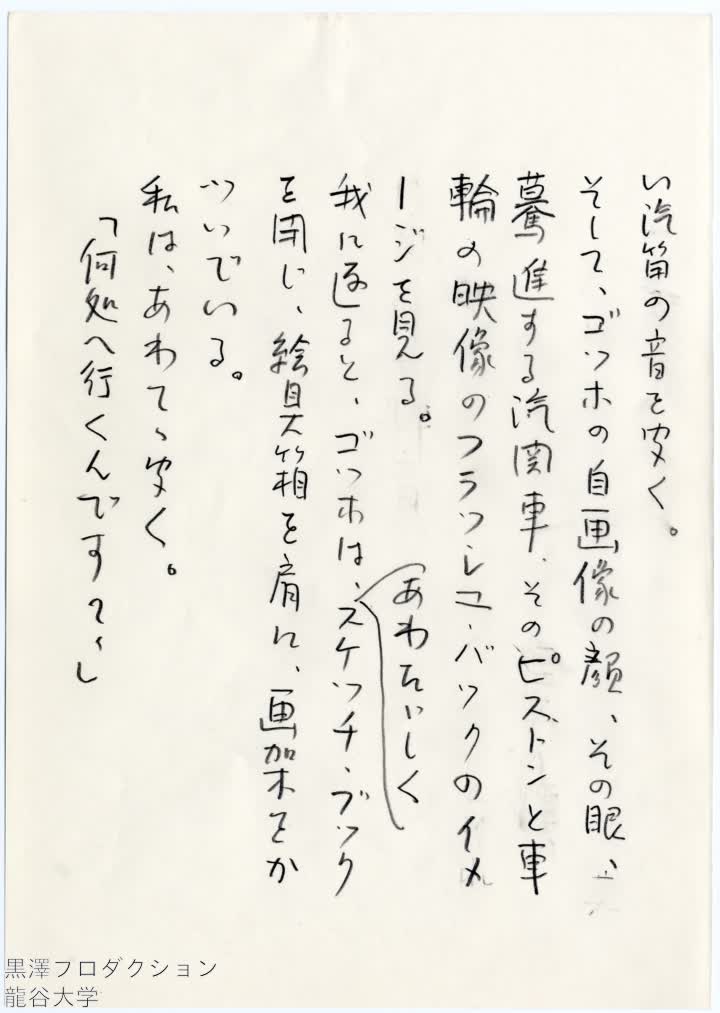 い汽笛の音を聞く。
そして、ゴッホの自画像の顔、その眼、
驀進する汽関車、そのピストンと車
輪の映像のフラッシュ・バックのイメ
ージを見る。
あわただしく
我に返ると、ゴッホは、スケッチ・ブック
を閉じ、絵具箱を肩に、画架をか
ついでいる。
私は、あわてゝ聞く。
「何処へ行くんです？」
黒澤プロダクション
龍谷大学